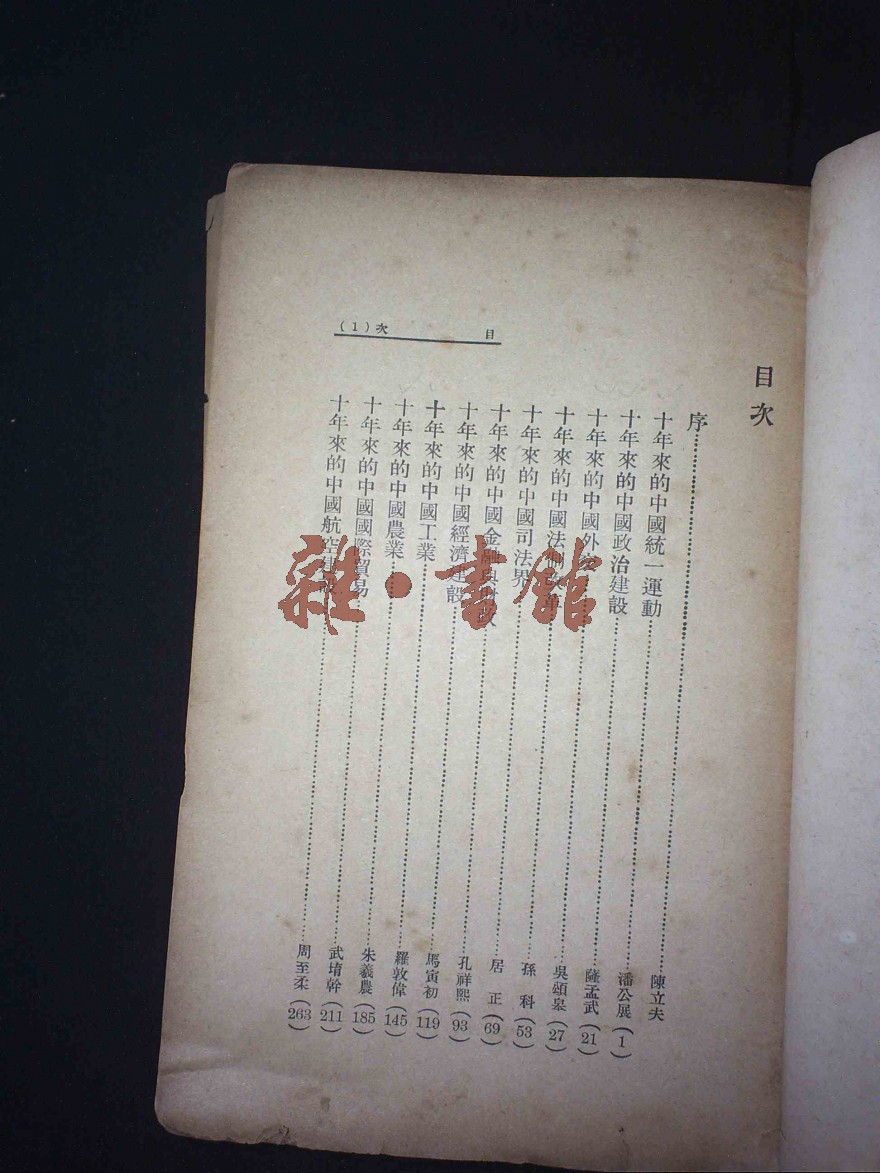 目次(1)
目次
序……陳立夫
十年來的中國統一運動……潘公展(1)
十年來的中國政治建設……薩孟武(21)
十年來的中國外交……吳頌皋(27)
十年來的中國法制改革……孫科(53)
十年來的中國司法界……居正(69)
十年來的中國金融與財政……孔祥熙(93)
十年來的中國經濟建設……馬寅初(119)
十年來的中國工業……羅敦偉(145)
十年來的中國農業……朱羲農(185)
十年來的中國國際貿易……武堉幹(211)
十年來的中國航空建設……周至柔(263)
雜·書館